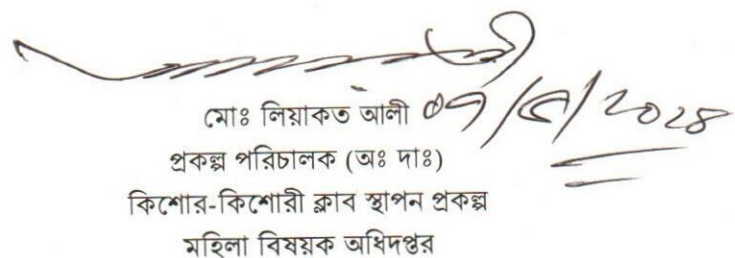 মোঃ লিয়াকত আলী ০৭/৫/২০২৪
প্রকল্প পরিচালক (অঃ দাঃ)
কিশোর-কিশোরী ক্লাব স্থাপন প্রকল্প
মহিলা বিষয়ক অধিদপ্তর